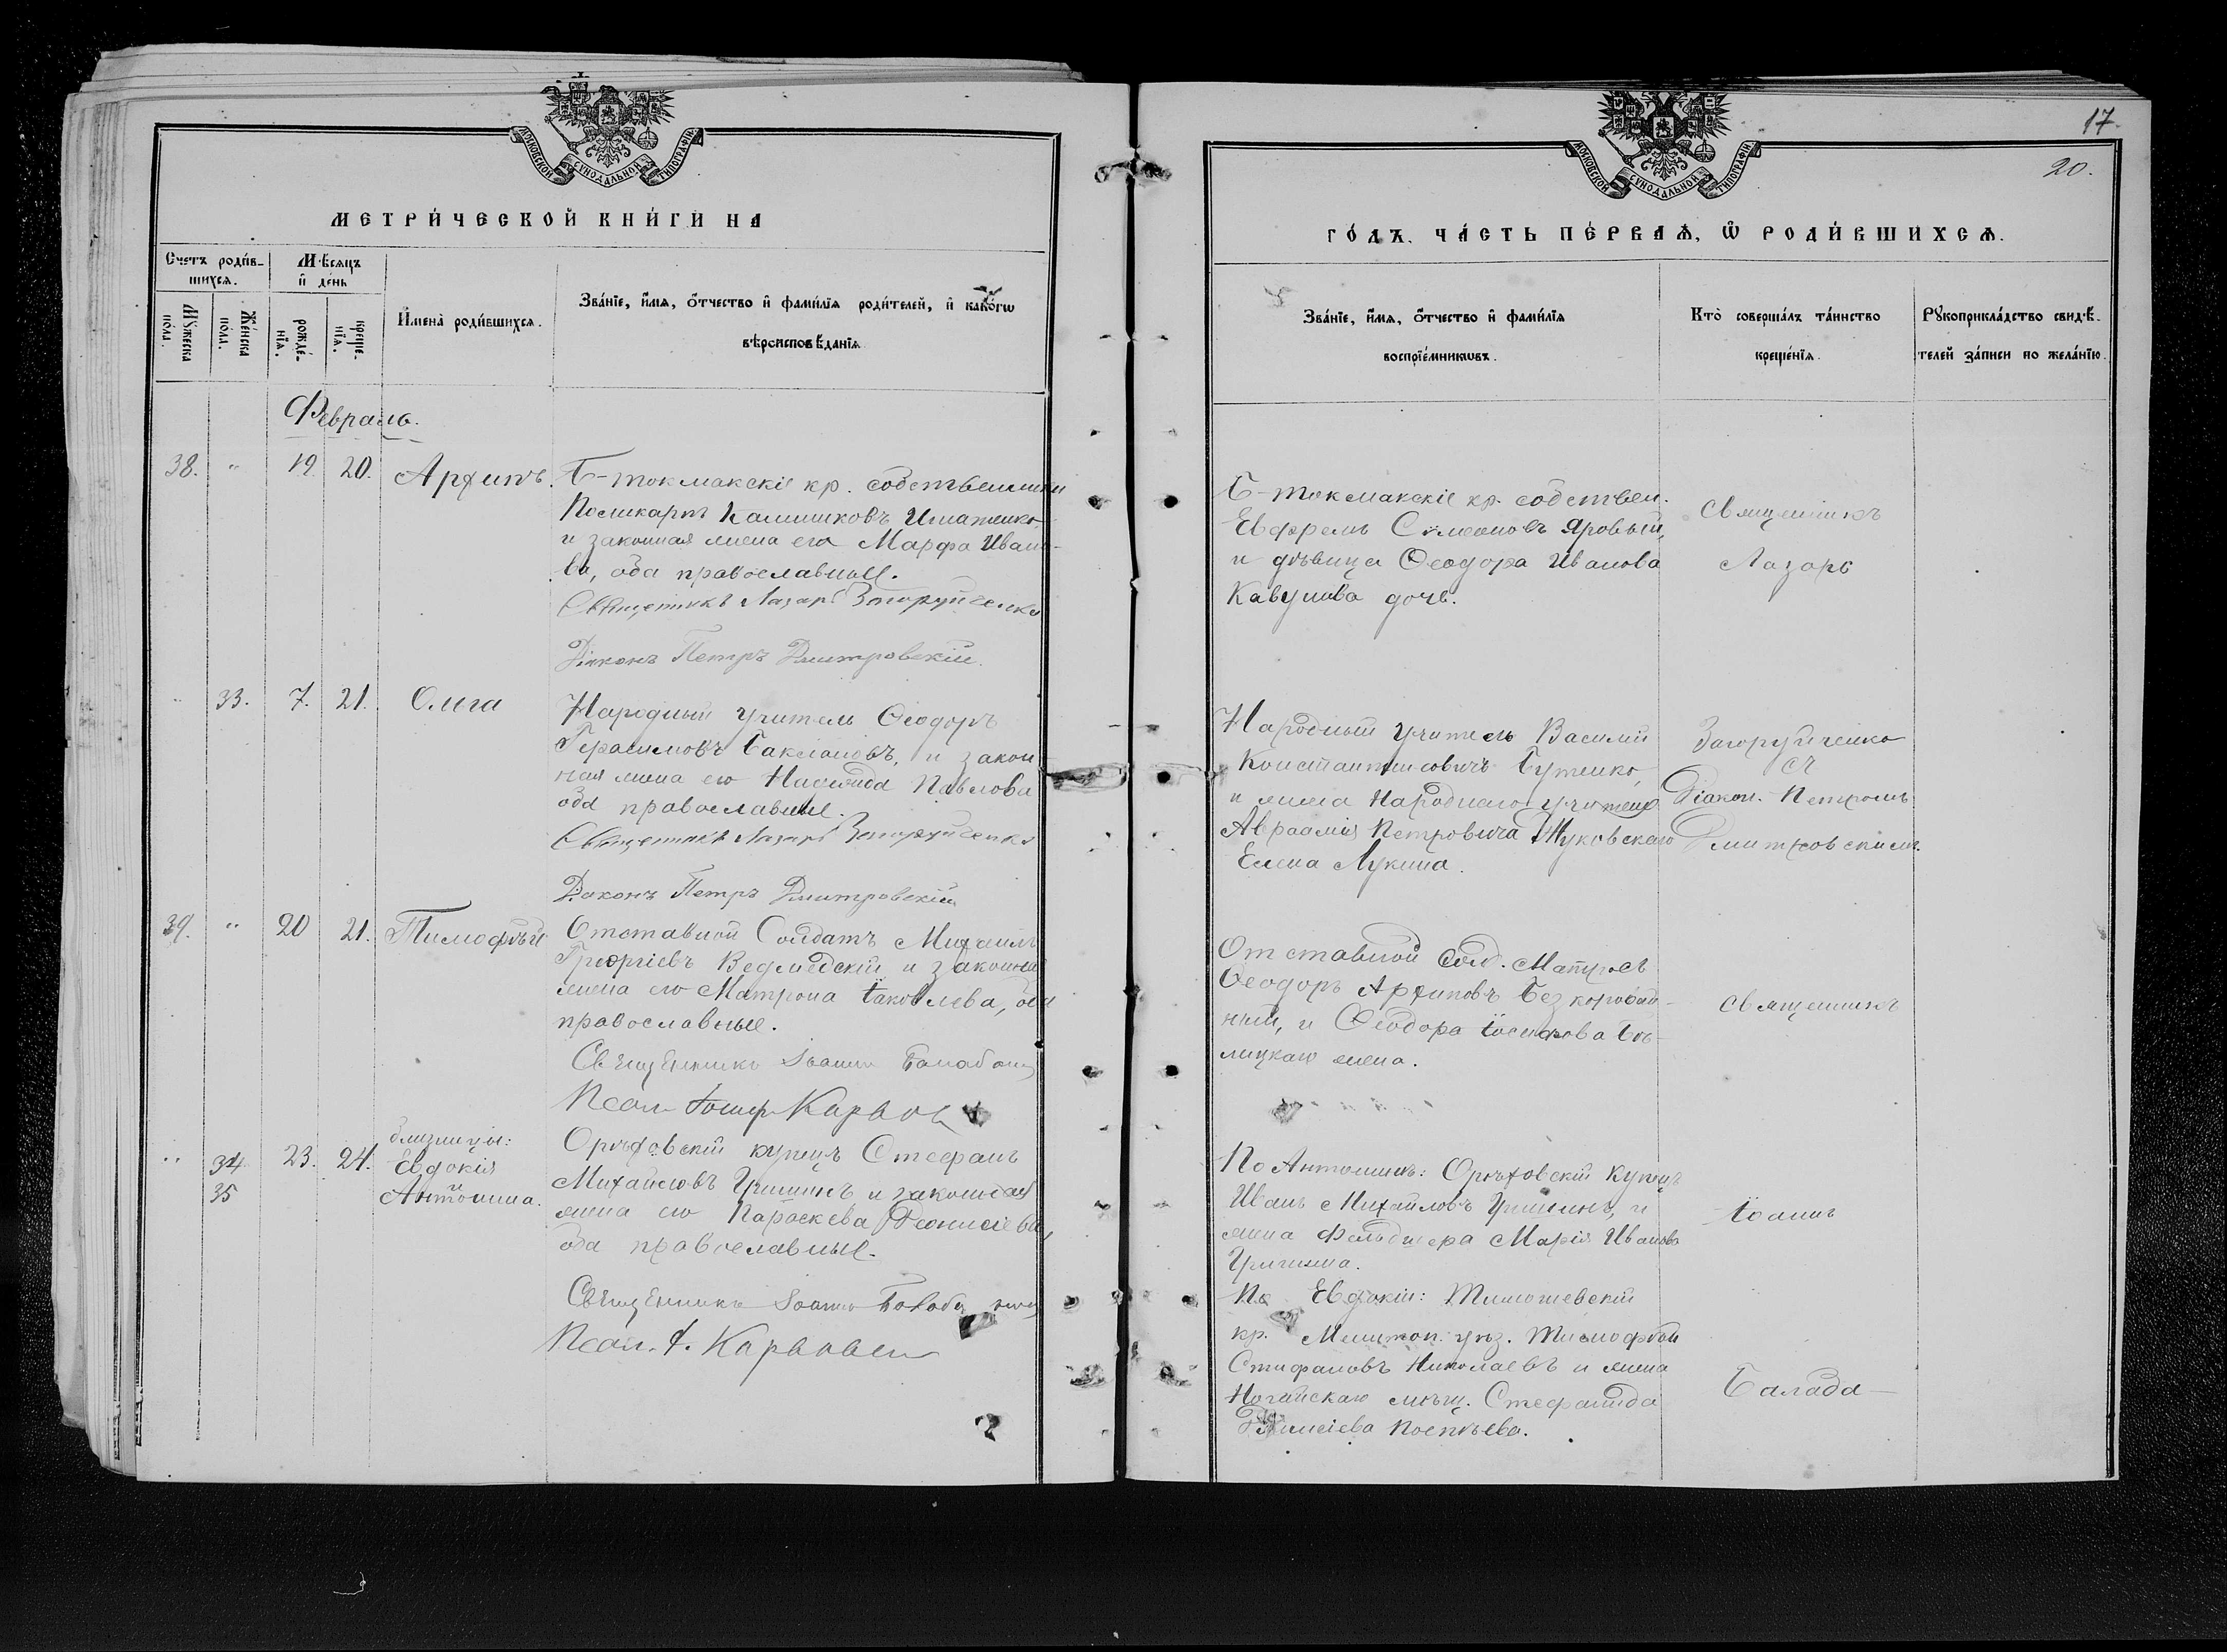 МОСКОВСКОЙ СѴНОДАЛЬНОЙ ТИПОГРАФІИ
МЕТРИ́ЧЕСКОЙ КНИ́ГИ НА
Счетъ роди́в-
шихсѧ.
Мѣсѧцъ
и҆ де́нь
Мꙋ́жеска
по́ла.
Же́нска
по́ла.
рожде́-
нїѧ.
креще́-
нїѧ.
И҆мена̀ роди́вшихсѧ.
Зва́нїе, и҆́мѧ, о҆́тчество и҆ фами́лїѧ роди́телей, и҆ како́гѡ
вѣроисповѣ́данїѧ.
Февраль.
38. " 19. 20. Архипъ.
Б-токмакскіе кр. собственники
Поликарпъ Калинниковъ Игнатенко
и законная жена его Марфа Ивано-
ва, оба православные.
Священникъ Лазарь Загоруйченко
Діаконъ Петръ Дмитровскій.
" 33. 7. 21. Ольга
Народный учитель Ѳеодоръ
Герасимовъ Баклановъ, и закон
ная жена его Надежда Павлова
оба православные.
Священникъ Лазарь Загоруйченко
Діаконъ Петръ Дмитровскій
39. " 20 21. Тимофѣй
Отставной Солдатъ Михаилъ
Георгіевъ Ведмедскій и законная
жена его Матрона Іаковлева, оба
православные.
Священникъ Іоаннъ
Псал. Іосиф
" 34. 35 23. 24.
близнецы:
Евдокія
и
Антонина.
Орѣховскій купецъ Стефанъ
Михайловъ Гришинъ и законная
жена его Параскева Діонисіева,
оба православные.
Священникъ Іоаннъ
Псал. І.
17.
20.
МОСКОВСКОЙ СѴНОДАЛЬНОЙ ТИПОГРАФІИ
ГО́ДЪ. ЧА́СТЬ ПЕ́РВАѦ, Ѡ҆ РОДИ́ВШИХСѦ.
Зва́нїе, и҆́мѧ, о҆́тчество и҆ фами́лїѧ
воспрїе́мникѡвъ.
Кто̀ соверша́лъ та́инство
креще́нїѧ.
Рꙋкоприкла́дство свидѣ́-
телей за́писи по жела́нїю.
Б-токмакскіе кр. собствен.
Ефремъ Симеоновъ Яровый,
и дѣвица Ѳеодора Иванова
Кавунова дочь.
Священникъ
Лазарь
Народный учитель Василій
Константиновичъ Бутенко,
и жена Народнаго учителя
Авраамія Петровича Жуковскаго
Елена Лукина.
Загоруйченко
съ
Діакон. Петромъ
Дмитровскимъ.
Отставной Солд. Матросъ
Ѳеодоръ Архиповъ Безкоровай-
ный, и Ѳеодора Іосифова Бѣ-
лицкаго жена.
Священникъ
По Антонинѣ: Орѣховскій купецъ
Иванъ Михайловъ Гришинъ, и
жена Фельдшера Марія Иванова
Гришина.
Іоаннъ
По Евдокіи: Тимошевскій
кр. Мелитоп. уѣз. Тимофѣй
Стифановъ Николаевъ и жена
Ногайскаго мѣщ. Стефанида
Балаба-